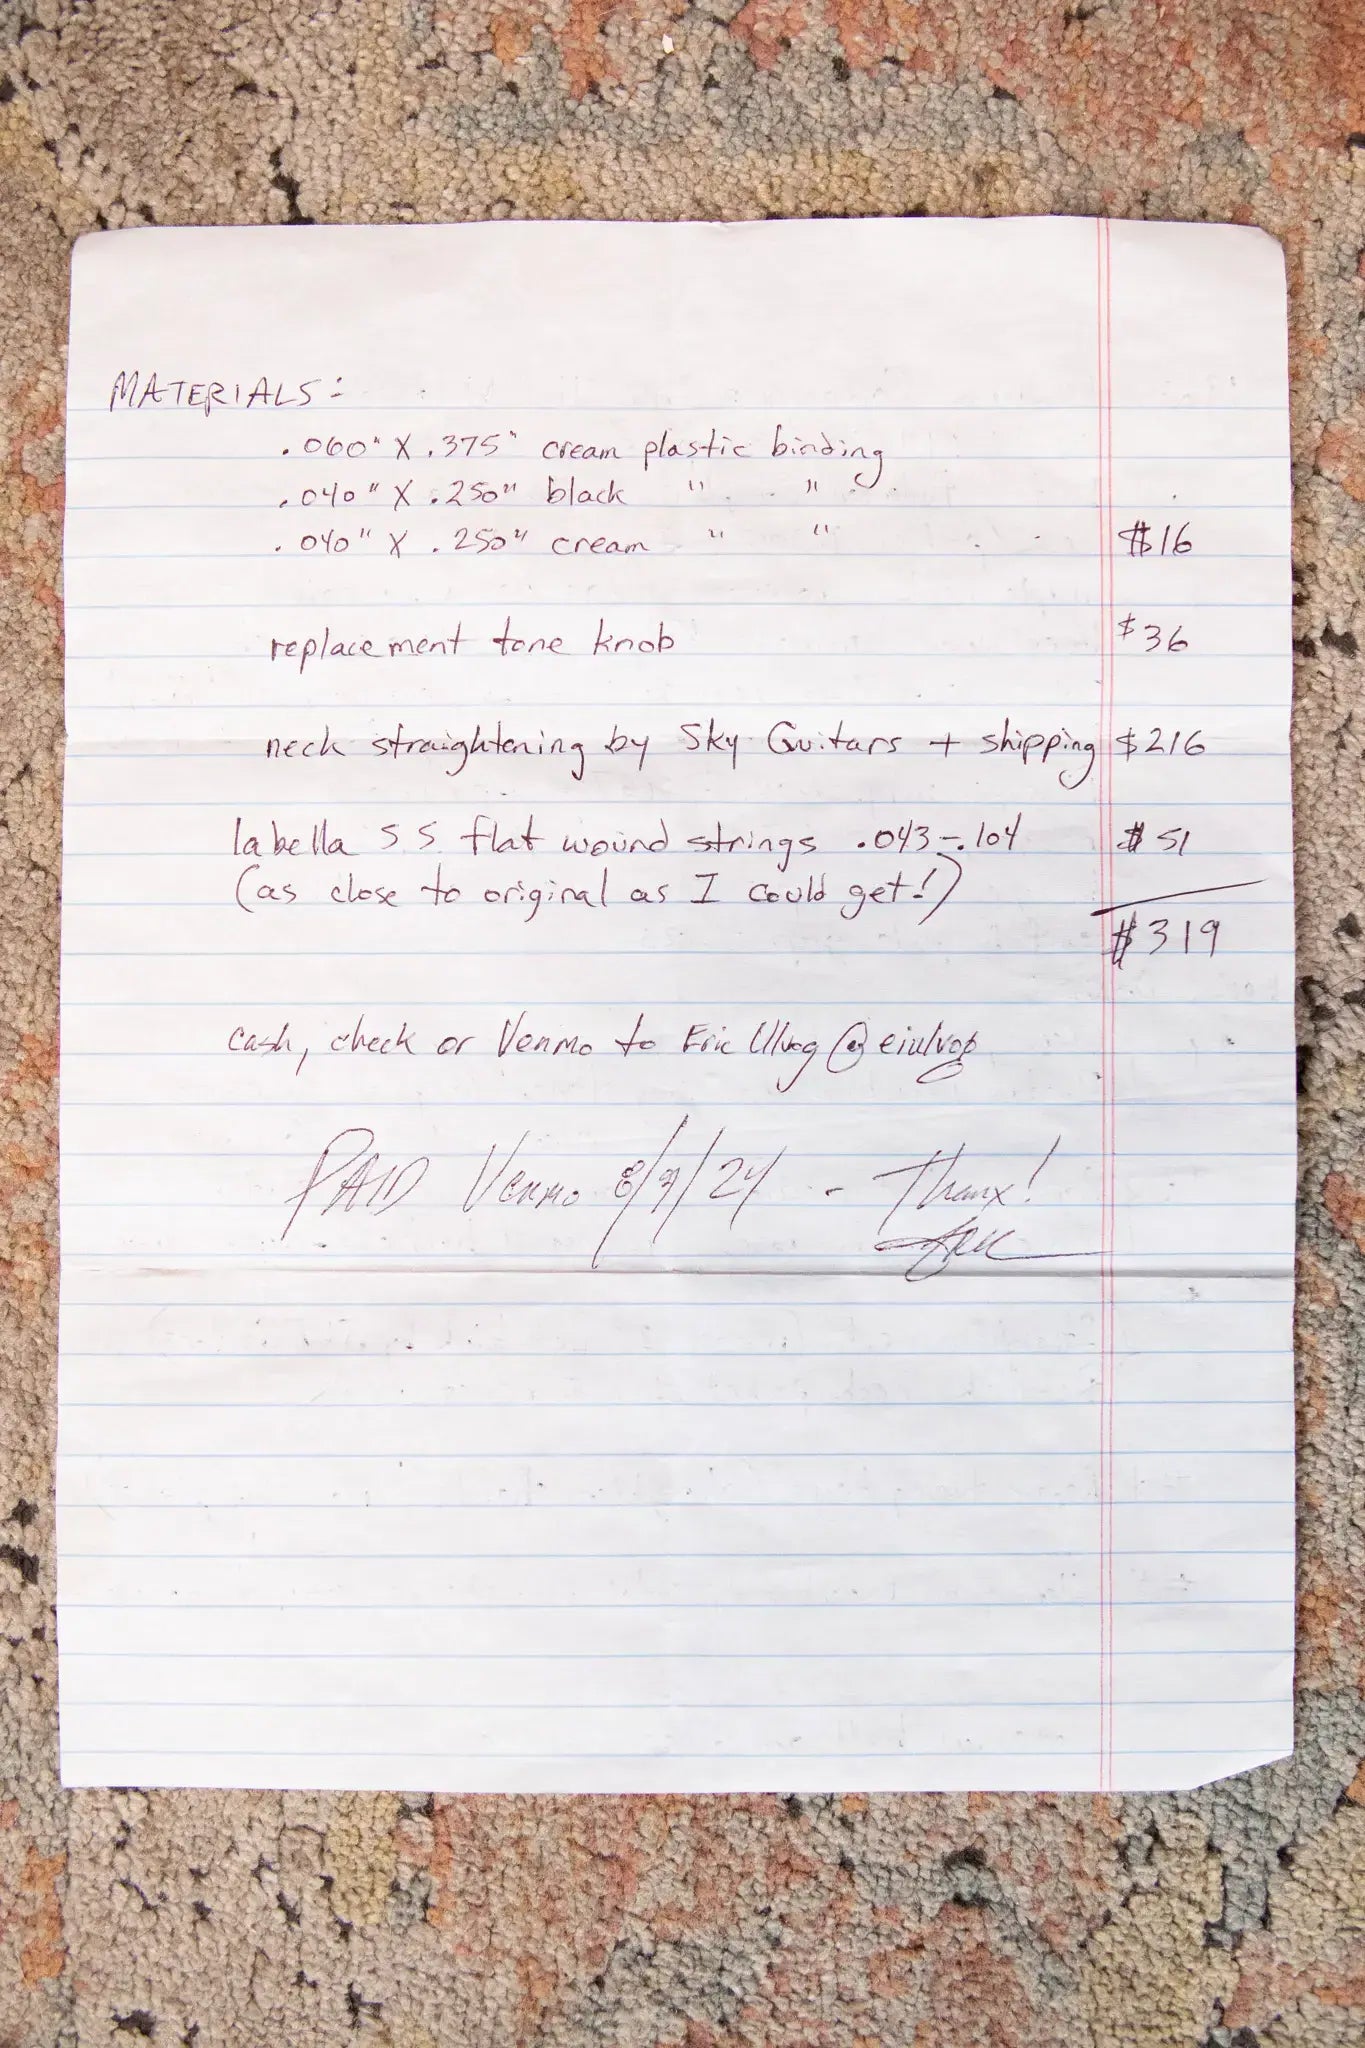 MATERIALS:
.060" X .375" cream plastic binding
.040" X .250" black " "
.040" X .250" cream " " $16
replacement tone knob $36
neck straightening by Sky Guitars + shipping $216
labella SS flat wound strings .043-.104 $51
(as close to original as I could get!)
$319
cash, check or Venmo to Eric Ulvog @eiulvog
PAID Venmo 8/9/24 - Thanx!
Eric